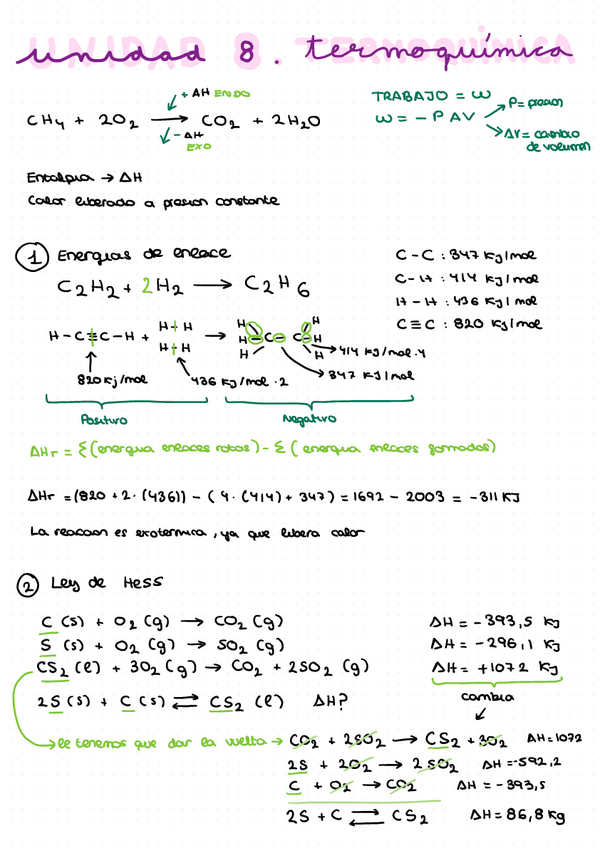 unidad 8. termoquímica
+ ΔH ENDO
CH4 + 2O2 ⟶ CO2 + 2H2O
- ΔH
EXO
TRABAJO = W
W = - P ΔV
P = presion
ΔV = cambio
de volumen
Entalpia → ΔH
Calor liberado a presion constante
1 Energias de enlace
C2H2 + 2H2 ⟶ C2H6
C-C : 347 KJ/mol
C-H : 414 KJ/mol
H-H : 436 KJ/mol
C≡C : 820 KJ/mol
H-C≡C-H + H-H H-H → H H H C-C H H H
414 KJ/mol·4
347 KJ/mol
820 KJ/mol
436 KJ/mol · 2
Positivo
Negativo
ΔHr = Σ(energia enlaces rotos) - Σ(energia enlaces formados)
ΔHr = (820 + 2·(436)) - (4·(414) + 347) = 1692 - 2003 = -311 KJ
La reaccion es exotermica, ya que libera calor
2 Ley de Hess
C (s) + O2 (g) → CO2 (g) ΔH = -393,5 KJ
S (s) + O2 (g) → SO2 (g) ΔH = -296,1 KJ
CS2 (l) + 3O2 (g) → CO2 + 2SO2 (g) ΔH = +1072 KJ
cambia
2S (s) + C (s) ⇌ CS2 (l) ΔH?
le tenemos que dar la vuelta → CO2 + 2SO2 → CS2 + 3O2 ΔH=1072
2S + 2O2 → 2SO2 ΔH=-592,2
C + O2 → CO2 ΔH = -393,5
2S + C ⇌ CS2 ΔH = 86,8 Kg